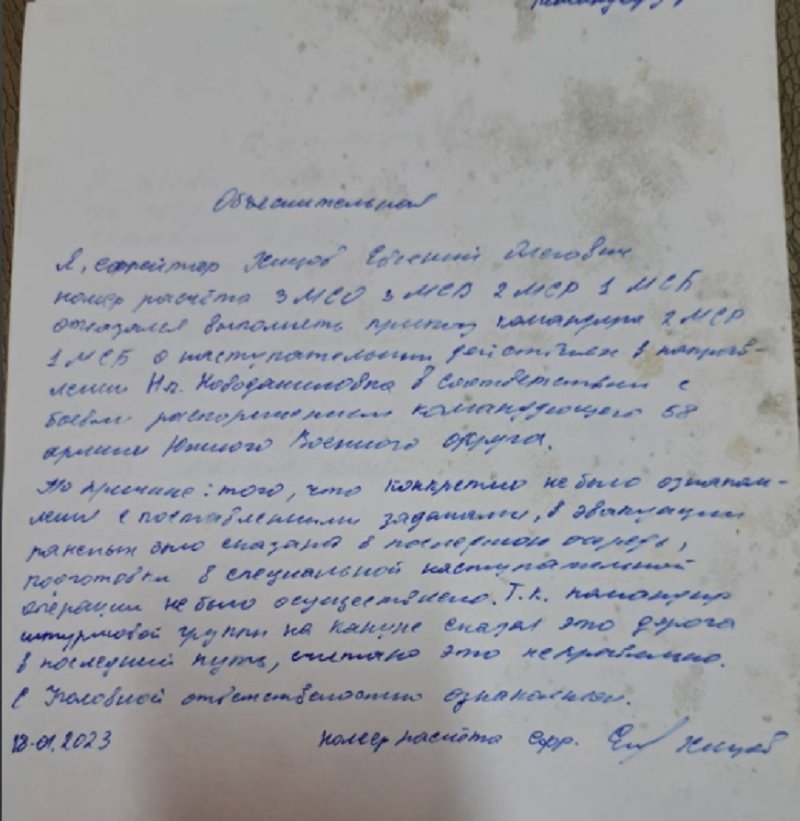 Объяснительная
Я, ефрейтор Хицов Евгений Олегович
номер расчёта 3 МСО 3 МСВ 2 МСР 1 МСБ
отказался выполнять приказ командира 2 МСР
1 МСБ о наступательным действиям в направ-
лении Нп. Новоданиловка в соответствии с
боевым распоряжением командующего 58
армии Южного Военного округа.
По причине: того, что конкретно не было ознаком-
ления с поставленными задачами, в эвакуации
раненых было сказано в последнюю очередь,
подготовки в специальной наступательной
операции не было осуществлено. Т.к. командир
штурмовой группы на кануне сказал это дорога
в последний путь, считаю это неправильно.
С Уголовной ответственостью ознакомлен.
18.01.2023 номер расчёта ефр. Хицов